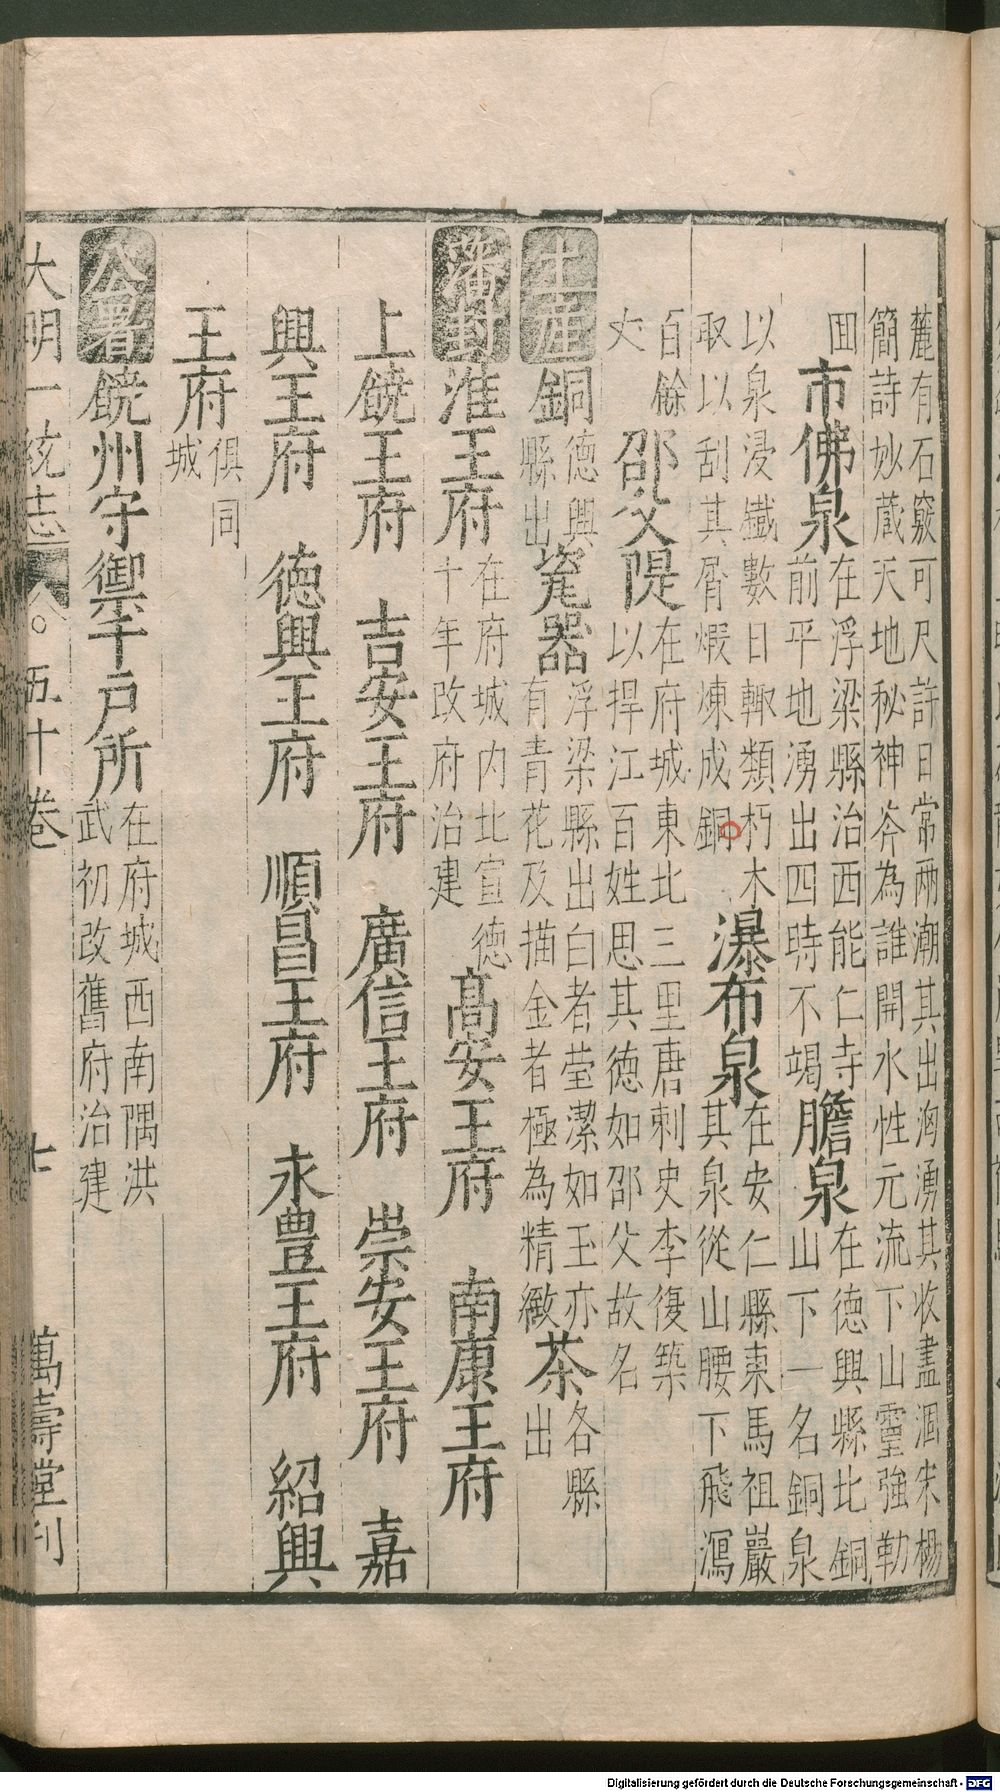 麓有石竅可尺許日常兩潮其出洶湧其收盡涸宋楊
簡詩妙蔵天地秘神斧為誰開水性元流下山靈強勒
囬市佛泉在浮梁縣治西能仁寺
前平地湧出四時不竭膽泉在德興縣北銅
山下一名銅泉
以泉浸鐵數日輙類朽木
取以刮其屑煆煉成銅瀑布泉在安仁縣東馬祖巖
其泉從山腰下飛瀉
百餘
丈邵父隄在府城東北三里唐刺史李復築
以捍江百姓思其德如邵父故名
土産銅德興
縣出瓷器浮梁縣出白者莹潔如玉亦
有青花及描金者極為精緻茶各縣
出
藩封淮王府在府城内北宣德
十年改府治建高安王府 南康王府
上饒王府 吉安王府 廣信王府 崇安王府 嘉
興王府 德興王府 順昌王府 永豊王府 紹興
王府俱同
城
公署饒州守禦千戸所在府城西南隅洪
武初改舊府治建
大明一統志 五十卷 七 萬壽堂刊
Digitalisierung gefördert durch die Deutsche Forschungsgemeinschaft - DFG